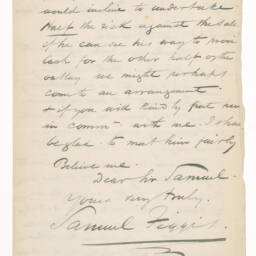 would incline to undertake
Half the risk against the sale
if he can see his way to provide
cash for the other half of the
outlay we might perhaps
come to an arrangement
& if you will kindly put him
in comm with me. I shall
be glad to meet him fairly
Believe me.
Dear Mr Samuel.
Yours very truly.
Samuel Figgis.